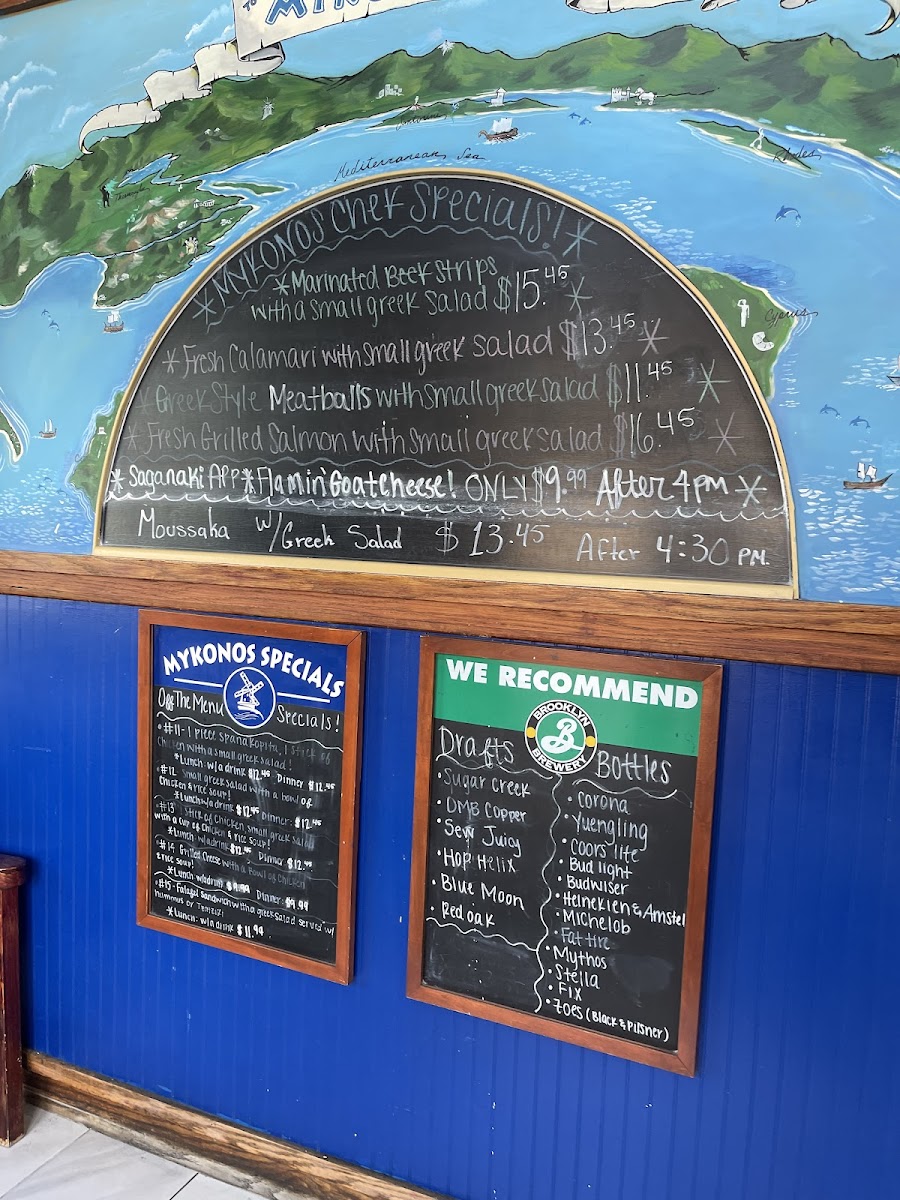 TO
Mediterranean Sea
Santorini
Rhodes
Cyprus
MYKONOS Chef Specials!
* Marinated Beef Strips
with a small greek salad $15.45 *
* Fresh Calamari with small greek salad $13.45 *
* Greek Style Meatballs with small greek salad $11.45 *
* Fresh Grilled Salmon with small greek salad $16.45 *
* Saganaki App * Flamin' Goat Cheese! ONLY $9.99 After 4pm *
Moussaka w/Greek Salad $13.45 After 4:30 PM.
MYKONOS SPECIALS
Off The Menu Specials!
• #11 - 1 piece spanakopita, 1 stick of
chicken with a small greek salad!
* Lunch: w/a drink $12.45 Dinner $12.45
• #12 small greek salad with a bowl of
chicken & rice soup!
* Lunch w/a drink $12.45 Dinner: $12.45
• #13 stick of chicken, small greek salad
with a cup of chicken & rice soup!
* Lunch: w/a drink $12.45, Dinner $12.45
• #14 Grilled Cheese with a bowl of chicken
& rice soup!
* Lunch w/a drink $9.99 Dinner: $9.99
• #15 - Falafel Sandwich with a greek salad served w/
hummus or Tzatziki!
* Lunch: w/a drink $11.99
WE RECOMMEND
BROOKLYN
B
BREWERY
Drafts
• Sugar creek
• OMB Copper
• Sew Juicy
• Hop Helix
• Blue Moon
• Red oak
Bottles
• Corona
• Yuengling
• Coors lite
• Bud light
• Budwiser
• Heinekien & Amstel
• Michelob
• Fat tire
• Mythos
• Stella
• Fix
• Zoes (Black & Pilsner)